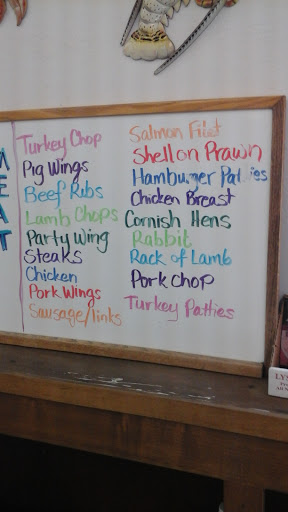 MEAT
Turkey Chop
Pig Wings
Beef Ribs
Lamb Chops
Party Wing
Steaks
Chicken
Pork Wings
Sausage/links
Salmon Filet
Shell on Prawn
Hamburger Patties
Chicken Breast
Cornish Hens
Rabbit
Rack of Lamb
Pork Chop
Turkey Patties